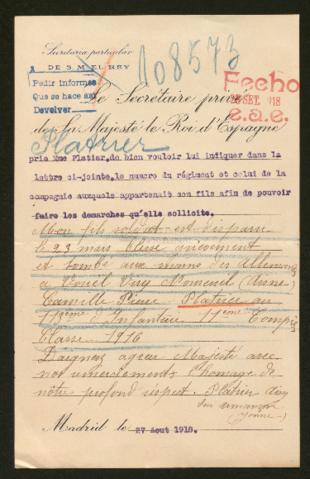 Secretaria particular
DE S. M. EL REY
108573
Pedir informes
Que se hace así
Devolver
Fecho
SET. 918
e.a.e.
Le Secrétaire privé
de Sa Majesté le Roi d'Espagne
Platrier
prie Mme Platier, de bien vouloir lui indiquer dans la
lettre ci-jointe, le numro du régiment et celui de la
compagnie auxquels appartenait son fils afin de pouvoir
faire les demarches qu'elle sollicite.
Mon fils soldat est disparu
le 23 mars blessé grièvement
et tombé aux mains des Allemands
a
Camille Pierre Platrier au
Infanterie 11eme Compie
Classe 1916
Daignez agreer Majesté avec
nos remerciements l'hommage de
notre profond respect. Platrier
(Yonne)
Madrid le 27 Aout 1918.